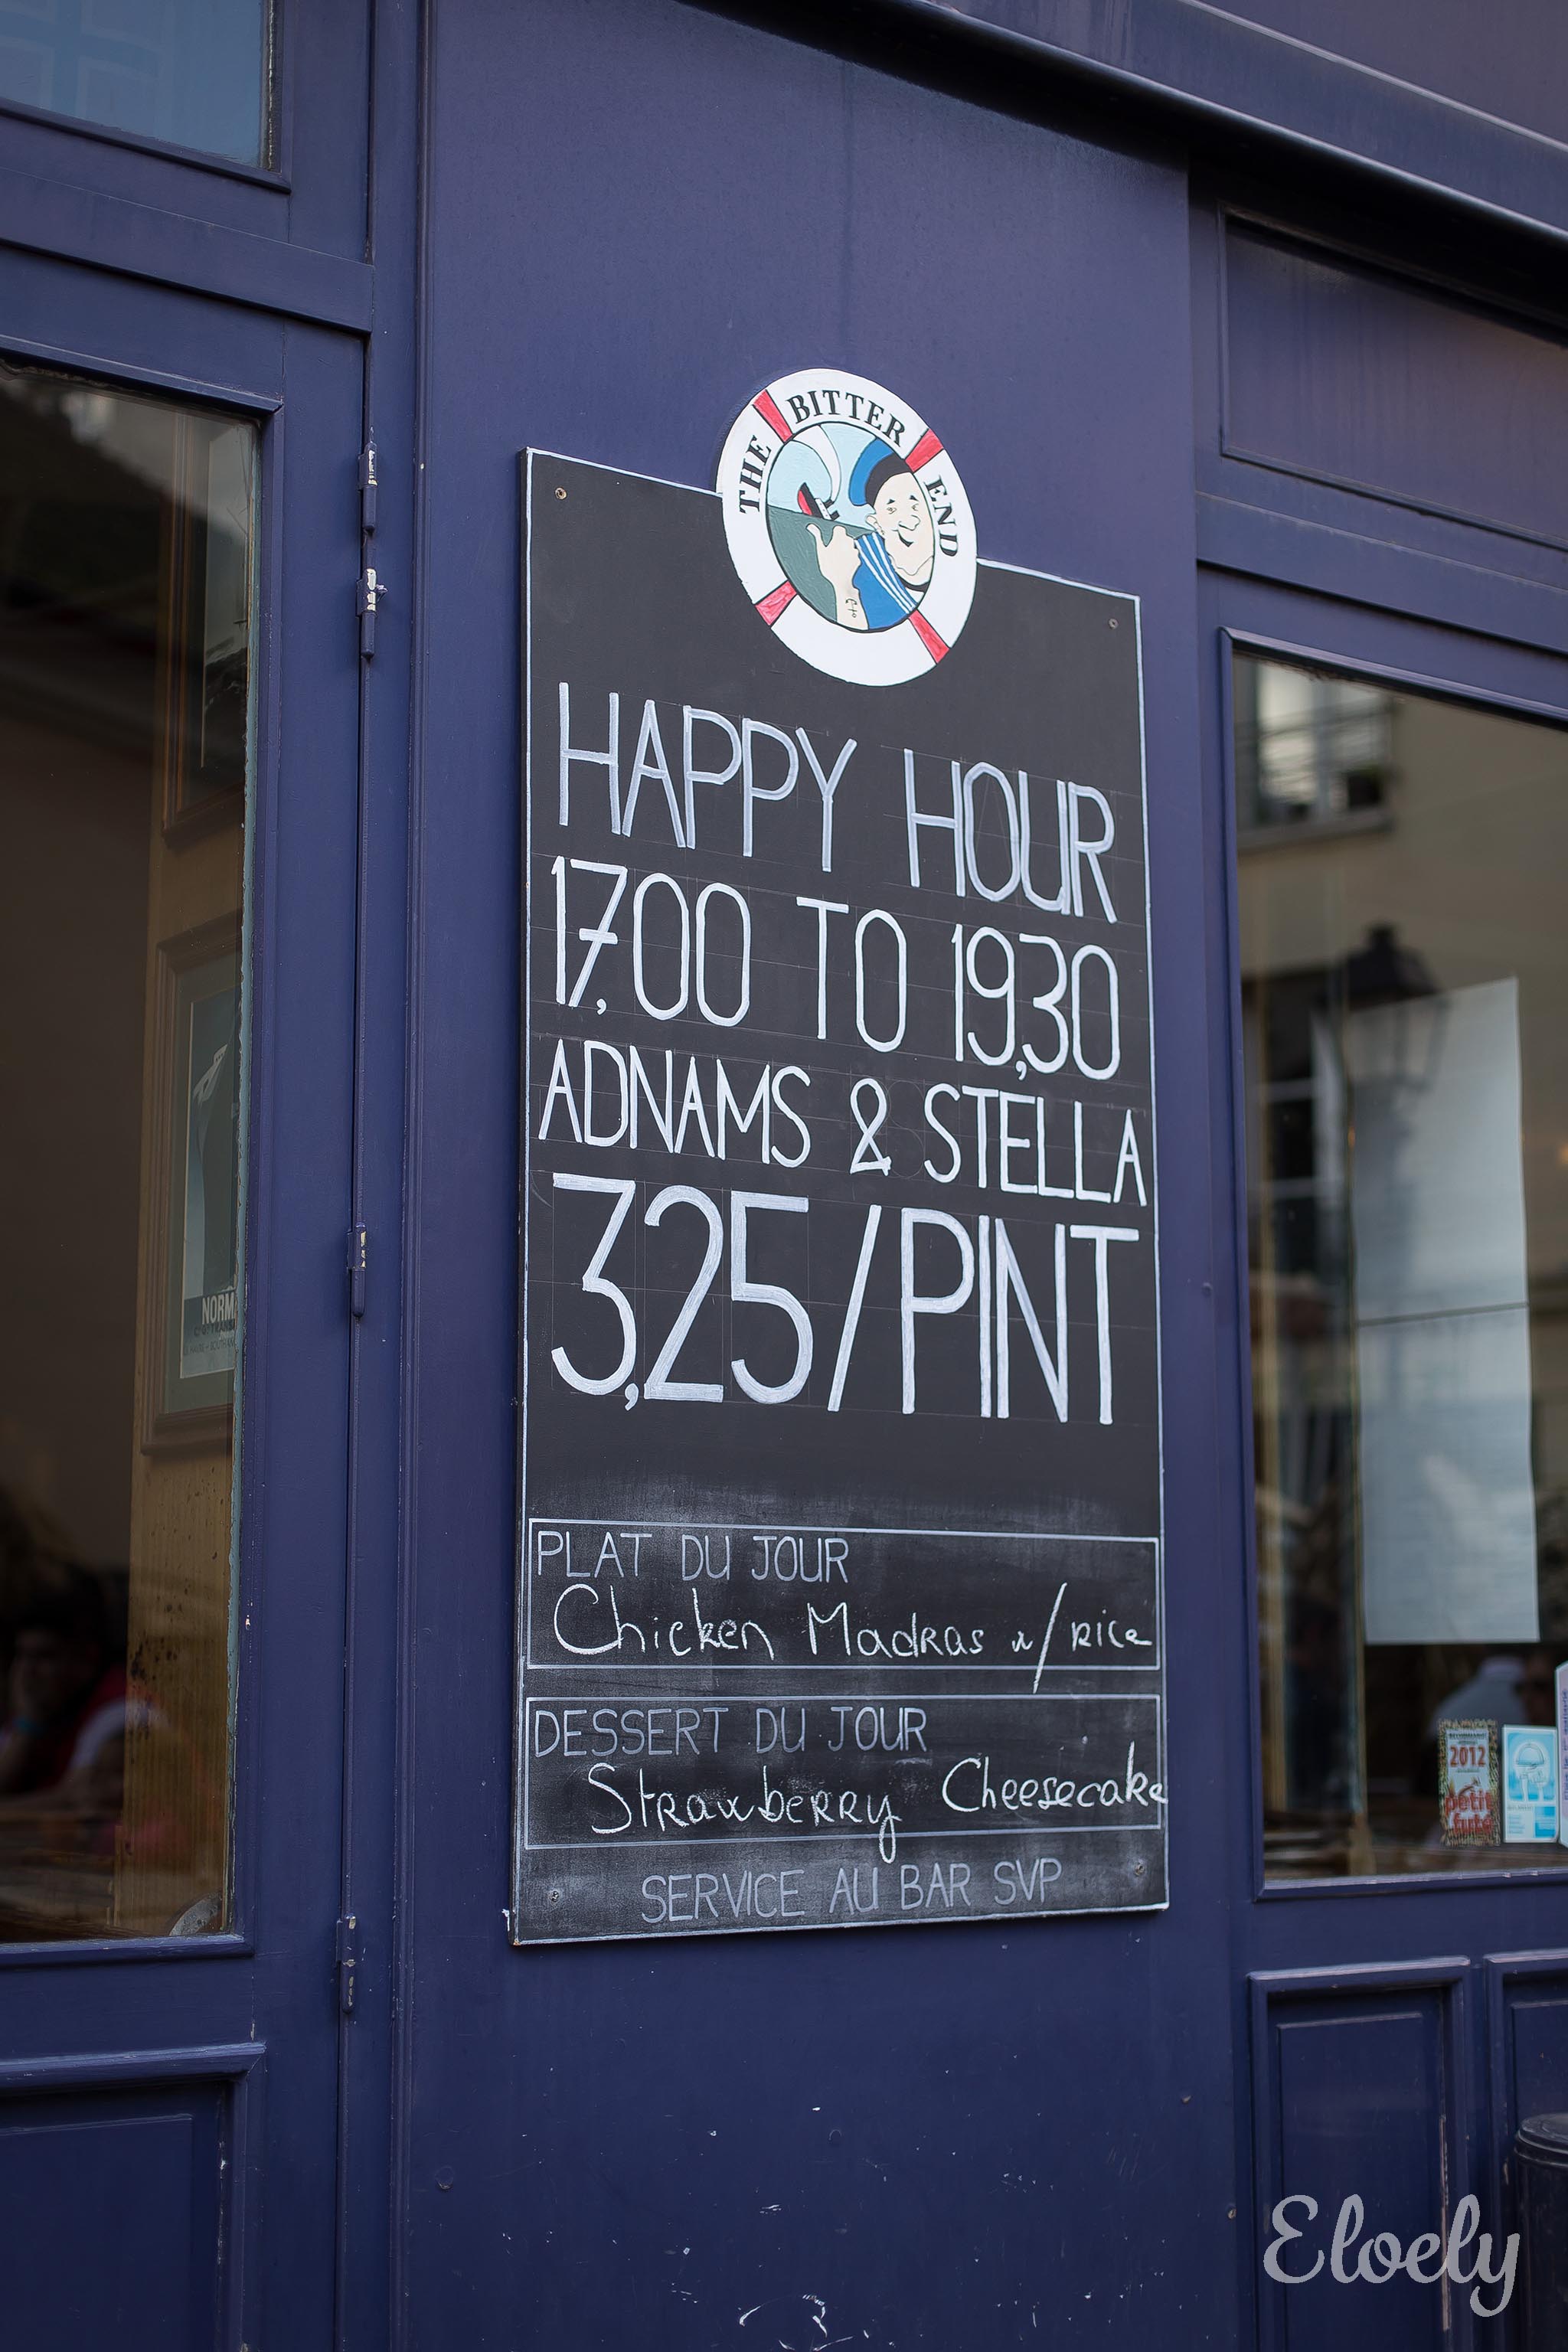 THE BITTER END
HAPPY HOUR
17,00 TO 19,30
ADNAMS & STELLA
3,25/PINT
PLAT DU JOUR
Chicken Madras w/ rice
DESSERT DU JOUR
Strawberry Cheesecake
SERVICE AU BAR SVP
NORM
2012
petit
futé
Eloely